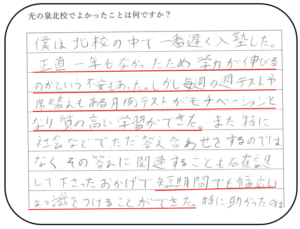 光の泉北校でよかったことは何ですか?
僕は北校の中で一番遅く入塾した。
正直一年もなかったため学力が伸びる
のかという不安もあった。しかし毎週の週テストや
席替えもある月例テストがモチベーションと
なり質の高い学習ができた。また特に
社会などでただ答え合わせをするのでは
なくその答えに関連することも
して下さったおかげで短期間でも幅広い
知識をつけることができた。特に助かったのは